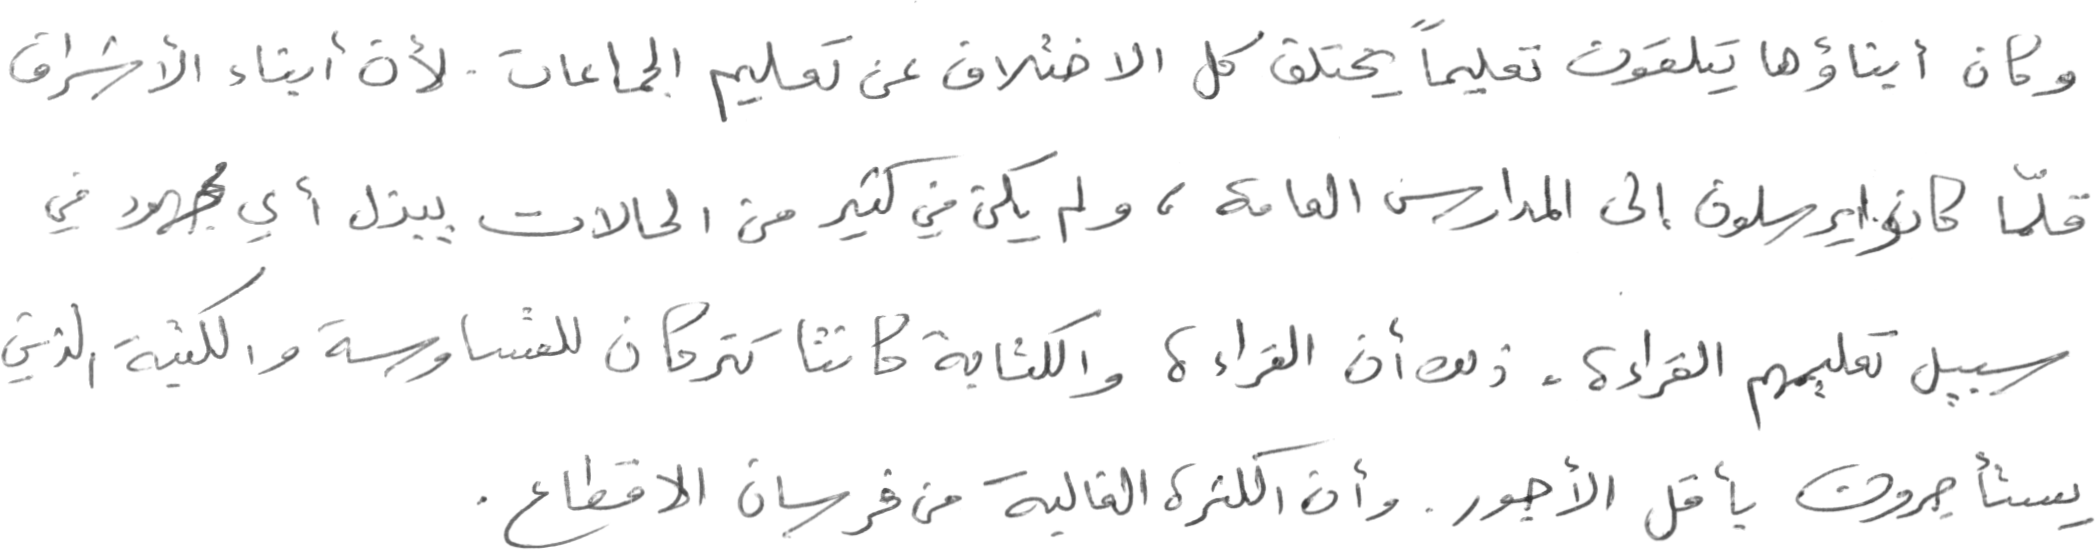 وكان أبناؤها يتلقون تعليماً يختلف كل الاختلاف عن تعليم الجماعات. لأن أبناء الأشراف
قلّما كانوا يرسلون إلى المدارس العامة، ولم يكن في كثير من الحالات يبذل أي مجهود في
سبيل تعليمهم القراءة. ذلك أن القراءة والكتابة كانتا تتركان للقساوسة والكتبة الذين
يستأجرون بأقل الأجور. وأن الكثرة الغالبة من فرسان الاقطاع.